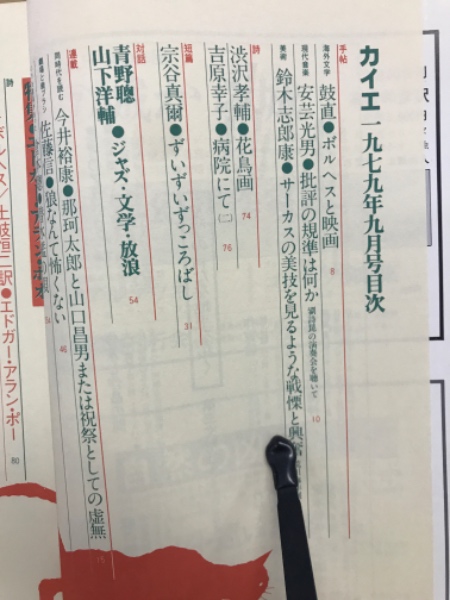 カイエ一九七九年九月号目次
手帖
海外文学
鼓直●ボルヘスと映画 8
現代音楽
安芸光男●批評の規準は何か 劉詩昆の演奏会を聴いて 10
美術
鈴木志郎康●サーカスの美技を見るような戦慄と興奮
詩
渋沢孝輔●花鳥画 74
吉原幸子●病院にて(二) 76
短篇
宗谷真爾●ずいずいずっころばし 31
対話
青野聰
山下洋輔●ジャズ・文学・放浪 54
連載
同時代を読む
今井裕康●那珂太郎と山口昌男または祝祭としての虚無 15
佐藤信●狼なんて怖くない 46
詩
土岐恒二訳●エドガー・アラン・ポー 80